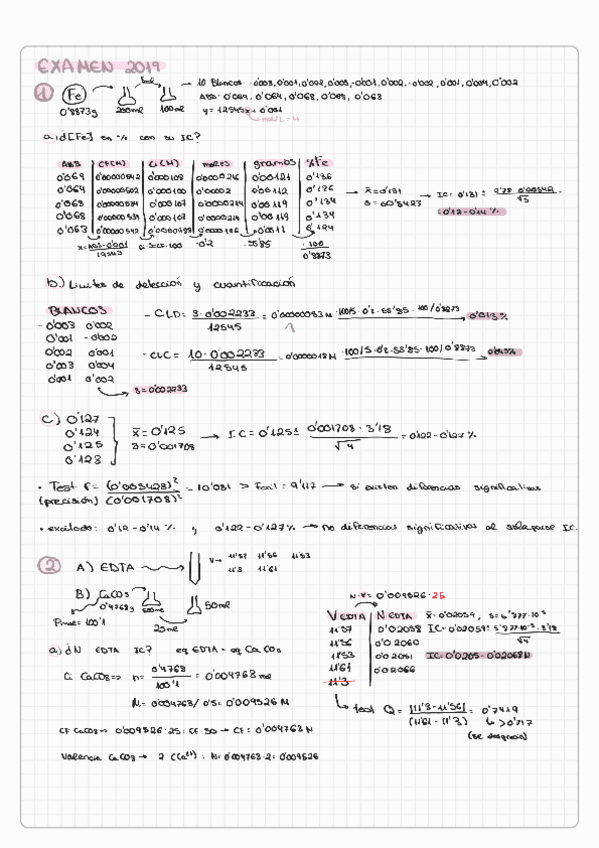 EXAMEN 2019
1 Fe 5ml → 10 Blancos: -0'003, 0'001, 0'002, 0'003, 0'001, 0'002, -0'002, 0'001, 0'004, 0'002
0'8873g 200ml 100ml ABS: 0'069, 0'064, 0'068, 0'068, 0'063
y = 12545x + 0'001
mol/L = M
a) d[Fe] en % con su IC?
ABS CF(M) Ci(M) moles gramos %Fe
0'069 0'00000542 0'000108 0'0000216 0'00121 0'136
0'064 0'00000502 0'000100 0'00002 0'00112 0'126
0'068 0'00000534 0'000107 0'0000214 0'00119 0'134
0'068 0'00000534 0'000107 0'0000214 0'00119 0'134
0'063 0'0011 0'124
→ x̄ = 0'131
→ IC = 0'131 ±
√5
0'12 - 0'14 %
x = ABS - 0'001 / 12545 Ci·5 = CF·100 ·0'2 ·55'85 ·100 / 0'8873
b) Límites de detección y cuantificación
BLANCOS
-0'003 0'002
0'001 -0'002
0'002 0'001
0'003 0'004
0'001 0'002
→ s = 0'002233
- CLD = 3·0'002233 / 12545 = 0'00000053 M ·100/5·0'2·55'85·100/0'8873 → 0'013 %
- CLC = 10·0'002233 / 12545 = 0'0000018 M ·100/5·0'2·55'85·100/0'8873
c) 0'127
0'124
0'125
0'123
x̄ = 0'125
s = 0'001708
→ IC = 0'125 ± 0'001708 · 3'18 / √4 = 0'122 - 0'127 %
· Test F = (0'005423)² / (0'001708)² = 10'081 > Fcrit: 9'117 → si existen diferencias significativas
(precisión)
· exactitud: 0'12 - 0'14 % y 0'122 - 0'127 % → no diferencias significativas al solaparse IC.
2 A) EDTA V → 11'57 11'56 11'53
11'3 11'61
B) CaCO3
0'4768g 500ml 50ml
Pmol = 100'1
25ml
N·V = 0'009526·25
V EDTA N EDTA x̄ = 0'02059, s = 5'877·10⁻⁵
11'57 0'02058 IC = 0'02059 ± 5'877·10⁻⁵ · 3'18 / √4
11'56 0'02060
11'53 0'02051 IC: 0'0205 - 0'02068 N
11'61 0'02066
11'3
a) dN EDTA IC? eq EDTA = eq CaCO3
Ci CaCO3 => n = 0'4768 / 100'1 = 0'004763 mol
M = 0'4763 / 0'5 = 0'009526 M
→ test Q = |11'3 - 11'56| / (11'61 - 11'3) = 0'7419
→ > 0'717
(se desprecia)
CF CaCO3 → 0'009526·25 = CF·50 → CF = 0'004763 M
Valencia CaCO3 → 2 (Ca²⁺) : N = 0'004763·2 = 0'009526